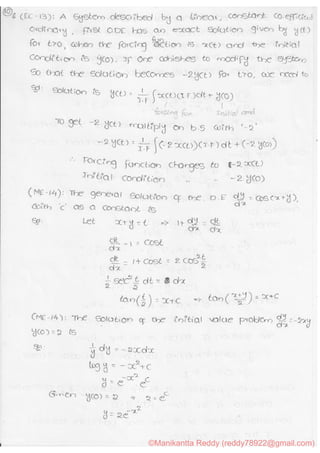 (EC-13): A system described by a linear, constant co-efficient
ordinary, first ODE has an exact solution given by y(t)
for t>0, when the forcing function is x(t) and the initial
condition is y(0). If one wishes to modify the system
so that the solution becomes -2y(t) for t>0, we need to
Sol: Solution is y(t) = 1/I.F ∫x(t)(I.F)dt + y(0)
forcing fun Initial cond
To get -2y(t) multiply on b.s with '-2'
-2y(t) = 1/I.F ∫(-2x(t))(I.F)dt + (-2y(0))
∴ Forcing function changes to -2x(t)
Initial condition " " -2y(0)
(ME-14): The general solution of the D.E dy/dx = cos(x+y),
with 'c' as a constant is
Sol: Let x+y = t ⇒ 1+dy/dx = dt/dx
dt/dx - 1 = cost
dt/dx = 1+cost = 2cos² t/2
1/2 sec² t/2 dt = dx
tan(t/2) = x+c ⇒ tan((x+y)/2) = x+c
(ME-14): The solution of the initial value problem dy/dx = -2xy
y(0)=2 is
Sol: 1/y dy = -2xdx
log y = -x²+c
y = e^-x² e^c
Given y(0) = 2 ⇒ 2 = e^c
y = 2e^-x²
©Manikantta Reddy (reddy78922@gmail.com)